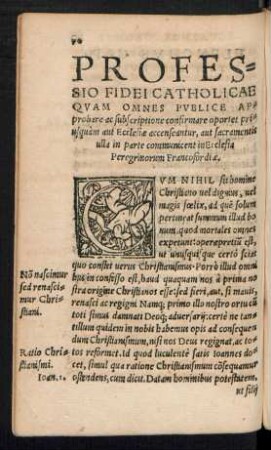 70
PROFES-
SIO FIDEI CATHOLICAE
QVAM OMNES PVBLICE AP
probare ac subscriptione confirmare oportet pri
usquàm aut Ecclesiæ accenseantur, aut sacramentis
ulla in parte communicent in Ecclesia
Peregrinorum Francofordiæ.
CVM NIHIL sit homine
Christiano uel dignius, uel
magis fœlix, ad quē solum
pertineat summum illud bo
num, quod mortales omnes
expetunt: operæpretiū est,
ut unusquisq̃ue certò sciat
quo constet uerus Christianismus. Porrò illud omni
bus in confesso est, haud quaquam nos à prima no
stra origine Christianos esse sed fieri, aut, si mauis,
renasci ac regigni. Namq; primo illo nostro ortu cū
toti simus damnati Deoq; aduersarij: certè ne tan-
tillum quidem in nobis habemus opis ad consequen
dum Christianismum, nisi nos Deus regignat, ac to
tos reformet. Id quod luculentè satis Ioannes docet,
et, simul qua ratione Christianismum cōsequamur
ostendens, cum dicit. Datam hominibus potestatem,
ut filij
Nō nascimur
sed renasci-
mur Chri-
stiani.
Ratio Chri-
stianismi.
Ioan. 1.